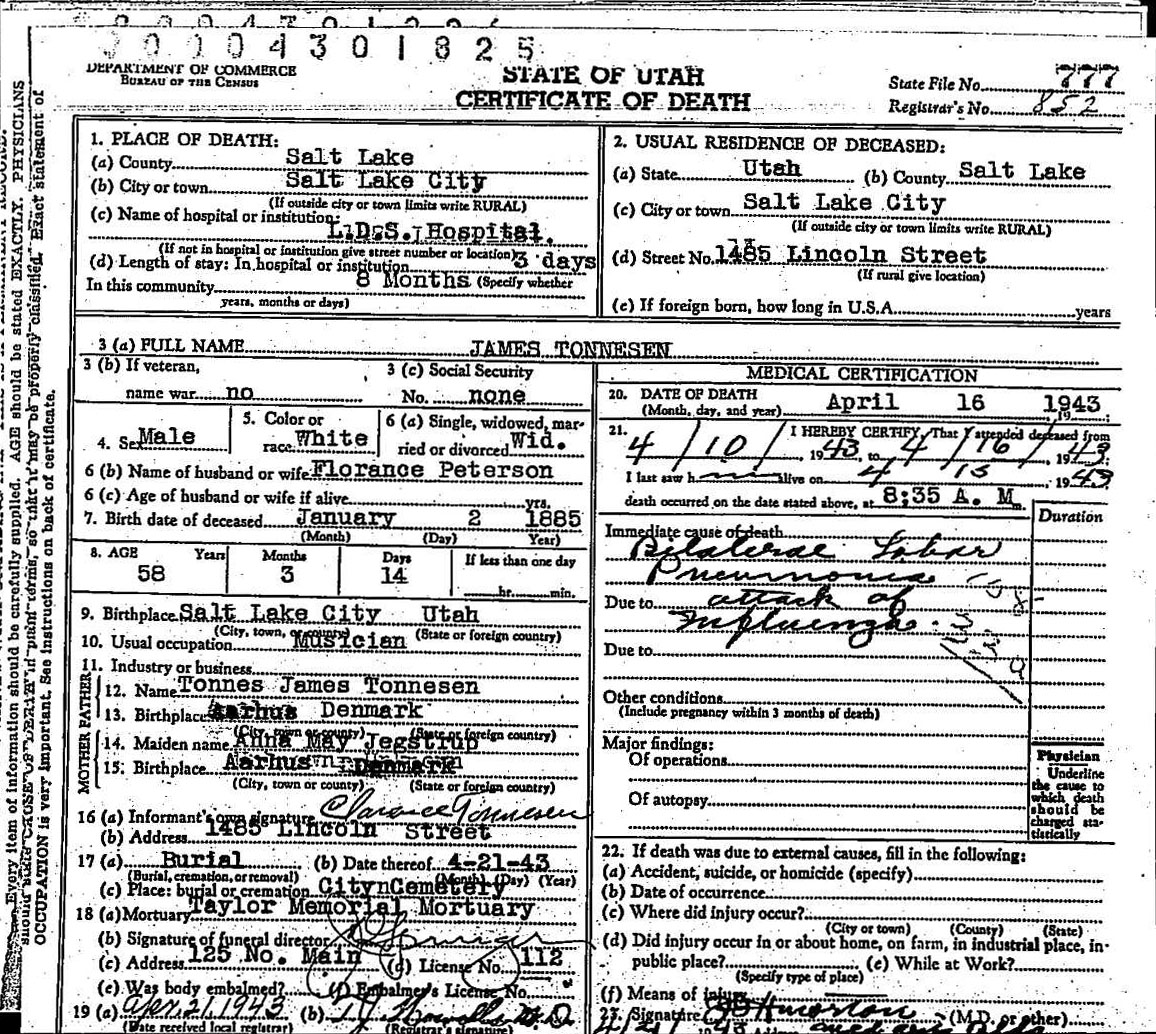 30004301825
DEPARTMENT OF COMMERCE
BUREAU OF THE CENSUS
STATE OF UTAH
CERTIFICATE OF DEATH
State File No. 777
Registrar's No. 852
1. PLACE OF DEATH:
(a) County Salt Lake
(b) City or town Salt Lake City
(If outside city or town limits write RURAL)
(c) Name of hospital or institution:
L.D.S. Hospital.
(If not in hospital or institution give street number or location)
(d) Length of stay: In hospital or institution 3 days
In this community 8 Months (Specify whether
years, months or days)
2. USUAL RESIDENCE OF DECEASED:
(a) State Utah (b) County Salt Lake
(c) City or town Salt Lake City
(If outside city or town limits write RURAL)
(d) Street No. 1485 Lincoln Street
(If rural give location)
(e) If foreign born, how long in U.S.A. years
3 (a) FULL NAME JAMES TONNESEN
3 (b) If veteran,
name war no
3 (c) Social Security
No. none
4. Sex Male
5. Color or
race White
6 (a) Single, widowed, mar-
ried or divorced Wid.
6 (b) Name of husband or wife Florance Peterson
6 (c) Age of husband or wife if alive yrs.
7. Birth date of deceased January 2 1885
(Month) (Day) Year)
8. AGE Years Months Days If less than one day
58 3 14
hr. min.
9. Birthplace Salt Lake City Utah
(City, town, or county) (State or foreign country)
10. Usual occupation Musician
11. Industry or business
FATHER
12. Name Tonnes James Tonnesen
13. Birthplace Aarhus Denmark
(City, town or county) (State or foreign country)
MOTHER
14. Maiden name Anna May Jegstrup
15. Birthplace Aarhus Denmark
(City, town or county) (State or foreign country)
16 (a) Informant's own signature Clarence Tonnesen
(b) Address 1485 Lincoln Street
17 (a) Burial (b) Date thereof 4-21-43
(Burial, cremation, or removal) (Month) (Day) (Year)
(c) Place: burial or cremation CitynCemetery
18 (a) Mortuary Taylor Memorial Mortuary
(b) Signature of funeral director
(c) Address 125 No. Main (d) License No. 112
(e) Was body embalmed? (f) Embalmer's License No.
19 (a) Apr. 21, 1943 (b)
(Date received local registrar) (Registrar's signature)
MEDICAL CERTIFICATION
20. DATE OF DEATH
(Month, day, and year) April 16 1943
21. I HEREBY CERTIFY, That I attended deceased from
4/10/1943, to 4/16/1943
I last saw h m alive on 4 15 1943
death occurred on the date stated above, at 8:35 A. M.
Duration
Immediate cause of death
Bilateral Lobar
Pneumonia
Due to attack of
Influenza.
Due to
Other conditions
(Include pregnancy within 3 months of death)
Major findings:
Of operations
Of autopsy
Physician
Underline
the cause to
which death
should be
charged sta-
tistically
22. If death was due to external causes, fill in the following:
(a) Accident, suicide, or homicide (specify)
(b) Date of occurrence
(c) Where did injury occur?
(City or town) (County) (State)
(d) Did injury occur in or about home, on farm, in industrial place, in
public place? (e) While at Work?
(Specify type of place)
(f) Means of injury
23. Signature (M.D. or other)
Every item of information should be carefully supplied. AGE should be stated EXACTLY. PHYSICIANS
should state CAUSE OF DEATH in plain terms, so that it may be properly classified. Exact statement of
OCCUPATION is very important. See instructions on back of certificate.